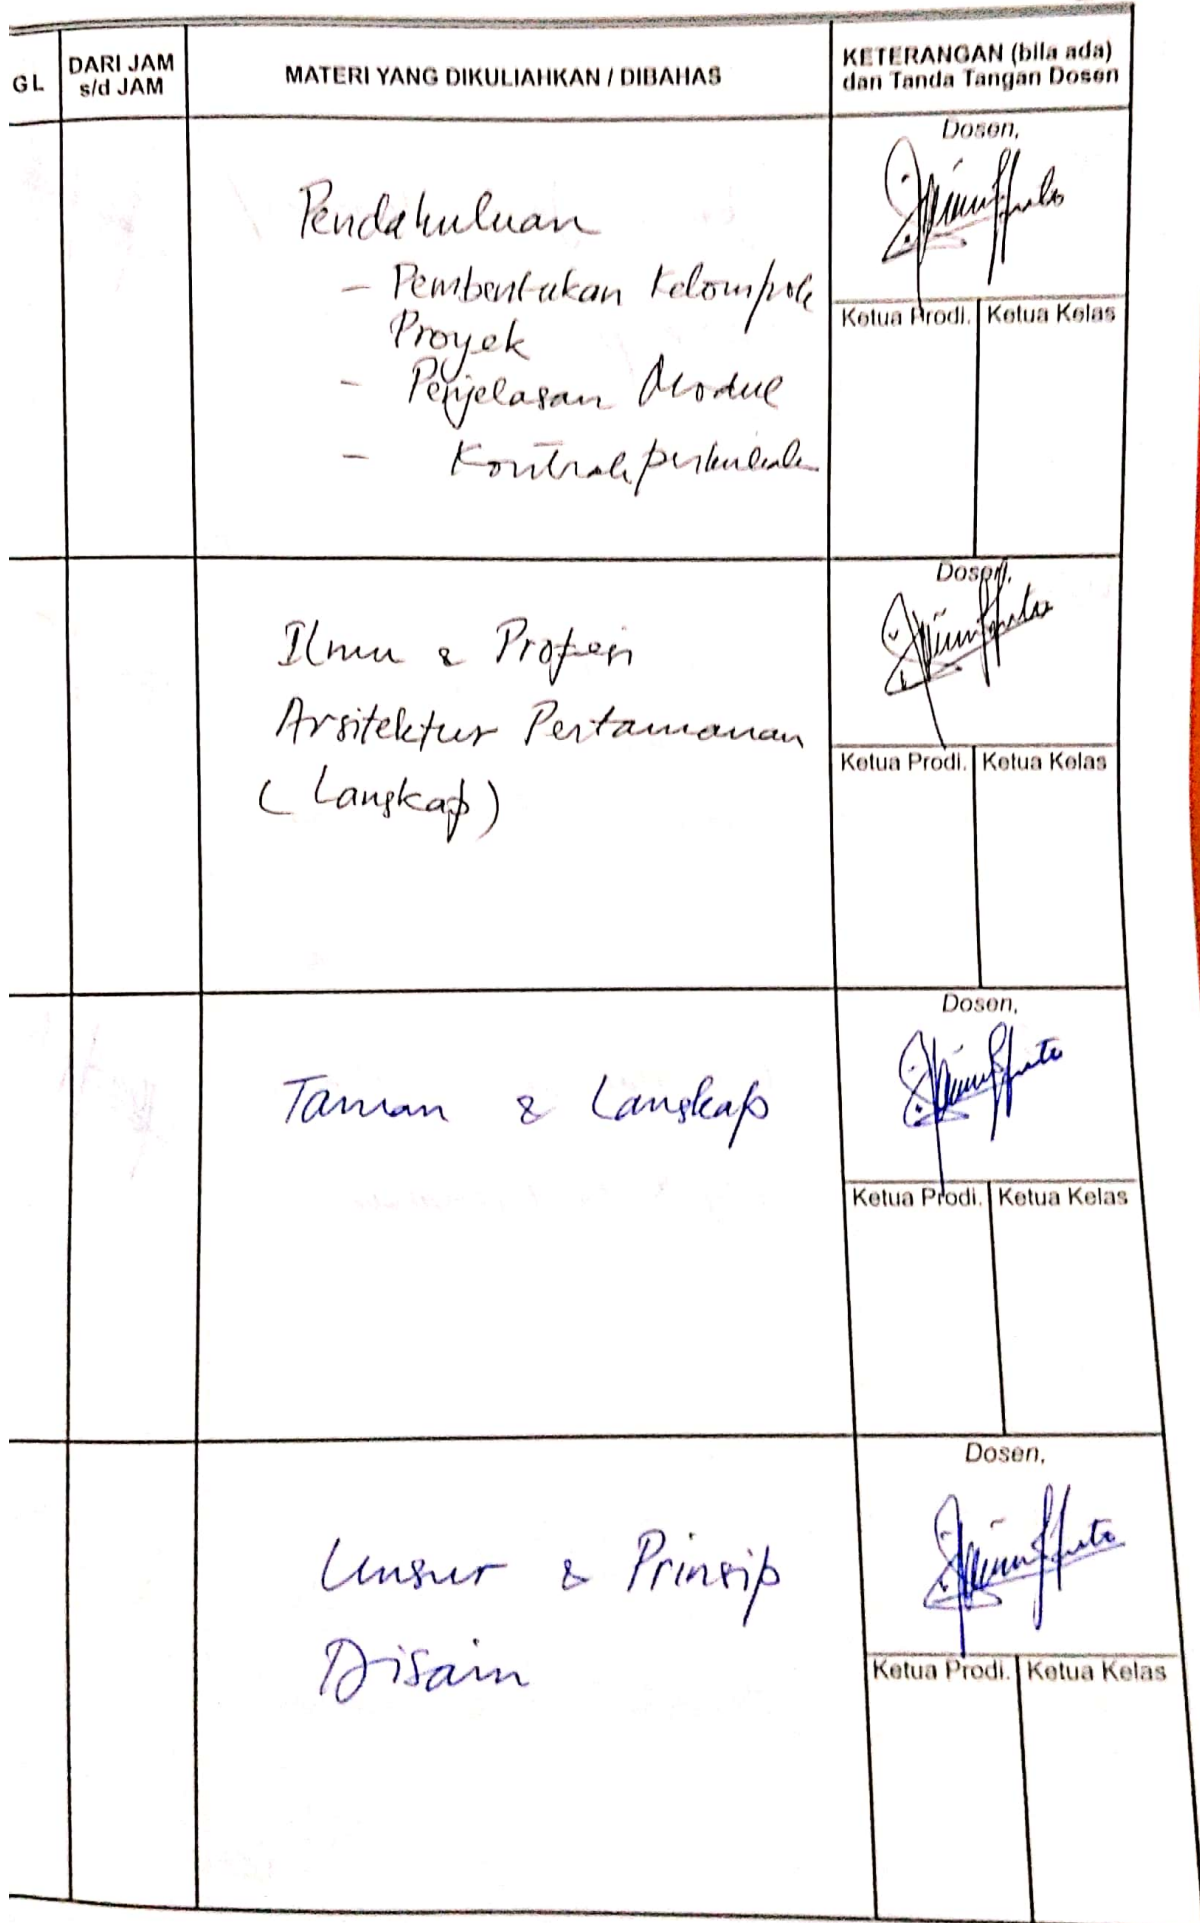 GL
DARI JAM
s/d JAM
MATERI YANG DIKULIAHKAN / DIBAHAS
KETERANGAN (bila ada)
dan Tanda Tangan Dosen
Pendahuluan
- Pembentukan Kelompok
Proyek
- Penjelasan Modul
- Kontrak
Dosen,
Ketua Prodi. Ketua Kelas
Ilmu & Profesi
Arsitektur Pertamanan
(Langskap)
Dosen,
Ketua Prodi. Ketua Kelas
Taman & Langskap
Dosen,
Ketua Prodi. Ketua Kelas
Unsur & Prinsip
Disain
Dosen,
Ketua Prodi. Ketua Kelas